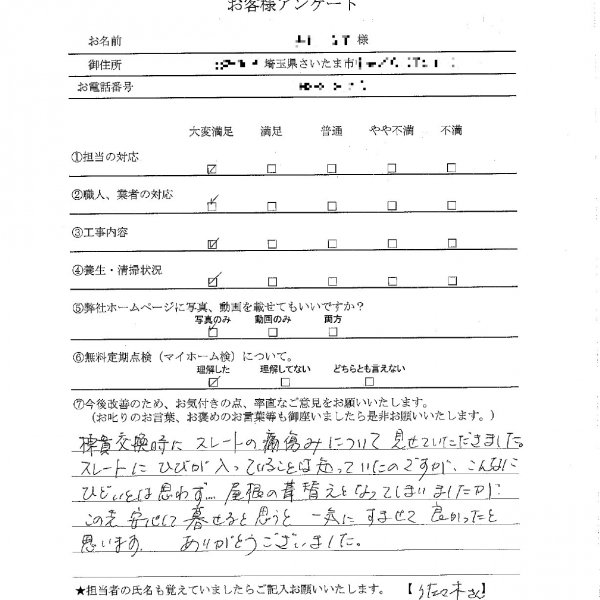 お客様アンケート
お名前 様
御住所 埼玉県さいたま市
お電話番号
大変満足 満足 普通 やや不満 不満
①担当の対応
②職人、業者の対応
③工事内容
④養生・清掃状況
⑤弊社ホームページに写真、動画を載せてもいいですか？
写真のみ 動画のみ 両方
⑥無料定期点検（マイホーム検）について。
理解した 理解してない どちらとも言えない
⑦今後改善のため、お気付きの点、率直なご意見をお願いいたします。
（お叱りのお言葉、お褒めのお言葉等も御座いましたら是非お願いいたします。）
棟貫交換時に スレートの痛みについて 見せていただきました。
スレートに ひびが 入っていることは知っていたのですが、こんなに
ひどいとは思わず… 屋根の葺替えとなってしまいましたが
この先 安心して 暮せると思うと 一気に すませて 良かったと
思います。 ありがとうございました。
★担当者の氏名も覚えていましたらご記入お願いいたします。【佐々木さん】